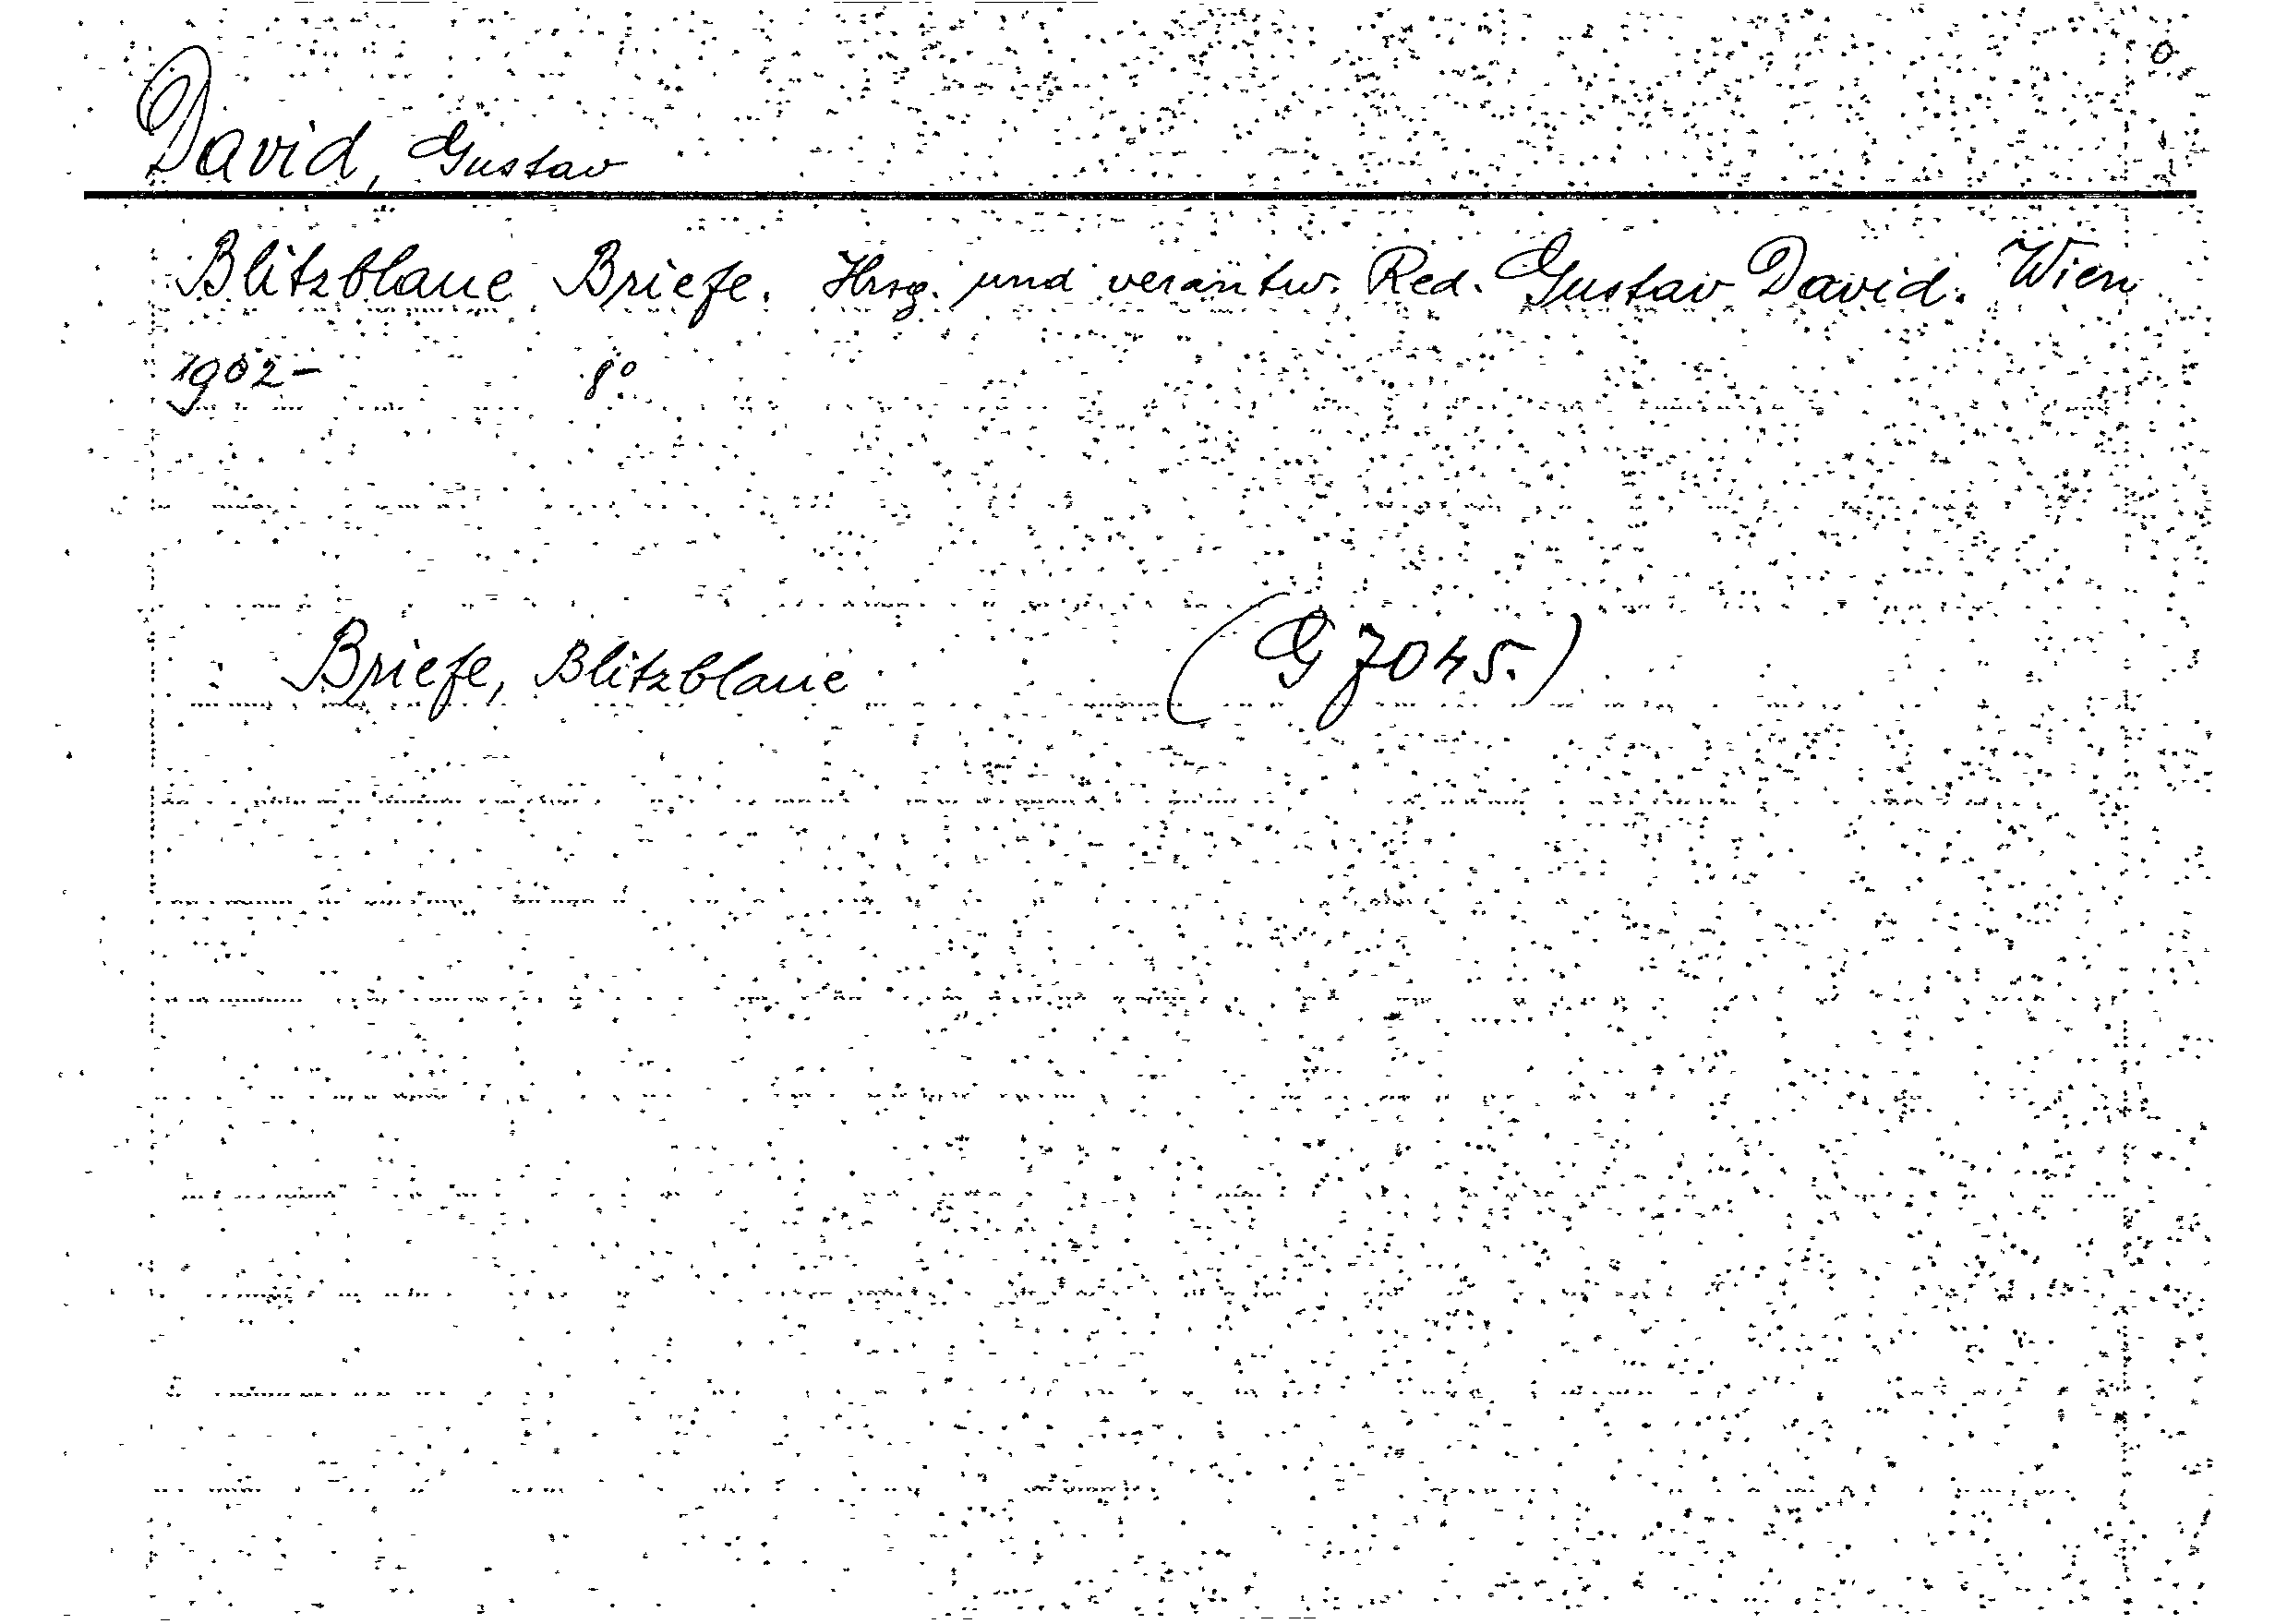 David, Gustav
Blitzblaue Briefe. Hrsg. und verantw. Red. Gustav David. Wien
1902- 8°
Briefe, Blitzblaue (G 7045.)